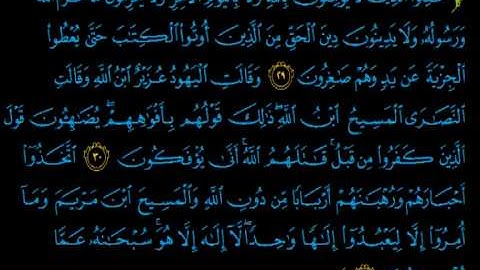 ٱلَّذِينَ لَا يُؤْمِنُونَ بِٱللَّهِ وَلَا بِٱلْيَوْمِ ٱلْآخِرِ وَلَا يُحَرِّمُونَ مَا حَرَّمَ ٱللَّهُ
وَرَسُولُهُۥ وَلَا يَدِينُونَ دِينَ ٱلْحَقِّ مِنَ ٱلَّذِينَ أُوتُوا۟ ٱلْكِتَٰبَ حَتَّىٰ يُعْطُوا۟
ٱلْجِزْيَةَ عَن يَدٍ وَهُمْ صَٰغِرُونَ ٢٩ وَقَالَتِ ٱلْيَهُودُ عُزَيْرٌ ٱبْنُ ٱللَّهِ وَقَالَتِ
ٱلنَّصَٰرَى ٱلْمَسِيحُ ٱبْنُ ٱللَّهِ ۖ ذَٰلِكَ قَوْلُهُم بِأَفْوَٰهِهِمْ ۖ يُضَٰهِـُٔونَ قَوْلَ
ٱلَّذِينَ كَفَرُوا۟ مِن قَبْلُ ۚ قَٰتَلَهُمُ ٱللَّهُ ۚ أَنَّىٰ يُؤْفَكُونَ ٣٠ ٱتَّخَذُوٓا۟
أَحْبَارَهُمْ وَرُهْبَٰنَهُمْ أَرْبَابًا مِّن دُونِ ٱللَّهِ وَٱلْمَسِيحَ ٱبْنَ مَرْيَمَ وَمَآ
أُمِرُوٓا۟ إِلَّا لِيَعْبُدُوٓا۟ إِلَٰهًا وَٰحِدًا ۖ لَّآ إِلَٰهَ إِلَّا هُوَ ۚ سُبْحَٰنَهُۥ عَمَّا